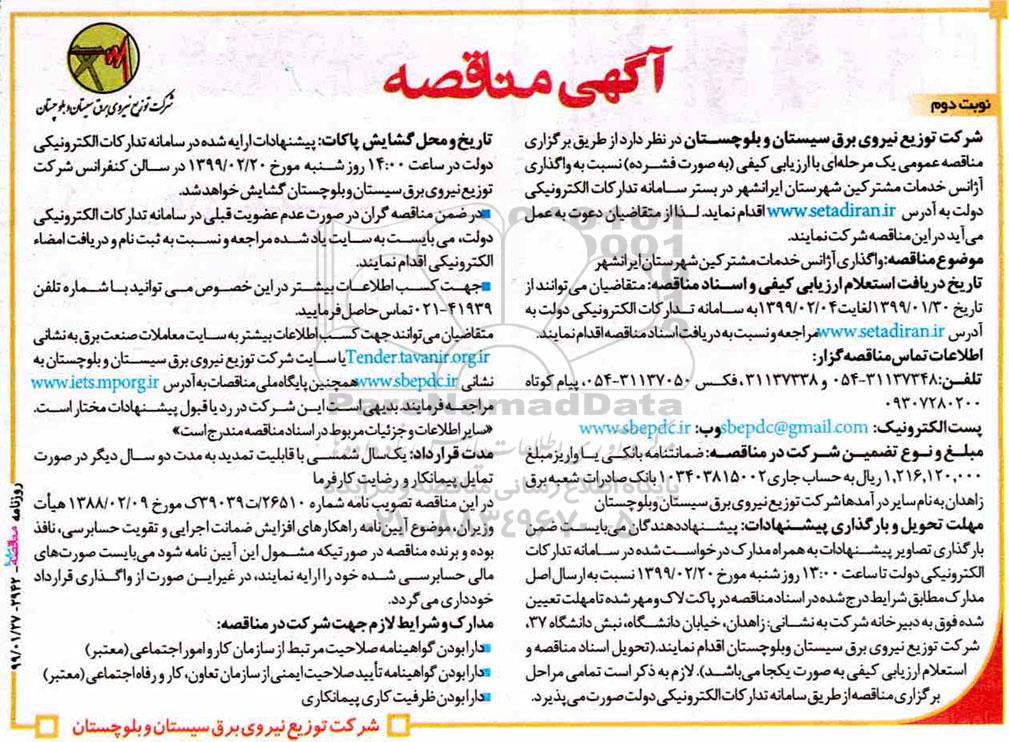 آگهی مناقصه
شرکت توزیع نیروی برق سیستان و بلوچستان
نوبت دوم
شرکت توزیع نیروی برق سیستان و بلوچستان در نظر دارد از طریق برگزاری
مناقصه عمومی یک مرحله‌ای با ارزیابی کیفی (به صورت فشرده) نسبت به واگذاری
آژانس خدمات مشترکین شهرستان ایرانشهر در بستر سامانه تدارکات الکترونیکی
دولت به آدرس www.setadiran.ir اقدام نماید. لذا از متقاضیان دعوت به عمل
می‌آید در این مناقصه شرکت نمایند.
موضوع مناقصه: واگذاری آژانس خدمات مشترکین شهرستان ایرانشهر
تاریخ دریافت استعلام ارزیابی کیفی و اسناد مناقصه: متقاضیان می‌توانند از
تاریخ ۱۳۹۹/۰۱/۳۰ لغایت ۱۳۹۹/۰۲/۰۴ به سامانه تدارکات الکترونیکی دولت به
آدرس www.setadiran.ir مراجعه و نسبت به دریافت اسناد مناقصه اقدام نمایند.
اطلاعات تماس مناقصه‌گزار:
تلفن: ۳۱۱۳۷۳۴۸-۰۵۴ و ۳۱۱۳۷۳۳۸، فکس ۳۱۱۳۷۰۵۰-۰۵۴، پیام کوتاه
۰۹۳۰۷۲۸۰۲۰۰
پست الکترونیک: sbepdc@gmail.com وب: www.sbepdc.ir
مبلغ و نوع تضمین شرکت در مناقصه: ضمانتنامه بانکی یا واریز مبلغ
۱,۲۱۶,۱۲۰,۰۰۰ ریال به حساب جاری ۰۱۰۳۴۰۳۸۱۵۰۰۲ بانک صادرات شعبه برق
زاهدان به نام سایر درآمدها شرکت توزیع نیروی برق سیستان و بلوچستان
مهلت تحویل و بارگذاری پیشنهادات: پیشنهاددهندگان می‌بایست ضمن
بارگذاری تصاویر پیشنهادات به همراه مدارک درخواست شده در سامانه تدارکات
الکترونیکی دولت تا ساعت ۱۳:۰۰ روز شنبه مورخ ۱۳۹۹/۰۲/۲۰ نسبت به ارسال اصل
مدارک مطابق شرایط درج شده در اسناد مناقصه در پاکت لاک و مهر شده تا مهلت تعیین
شده فوق به دبیرخانه شرکت به نشانی: زاهدان، خیابان دانشگاه، نبش دانشگاه ۳۷،
شرکت توزیع نیروی برق سیستان و بلوچستان اقدام نمایند. (تحویل اسناد مناقصه و
استعلام ارزیابی کیفی به صورت یکجا می‌باشد). لازم به ذکر است تمامی مراحل
برگزاری مناقصه از طریق سامانه تدارکات الکترونیکی دولت صورت می‌پذیرد.
تاریخ و محل گشایش پاکات: پیشنهادات ارایه شده در سامانه تدارکات الکترونیکی
دولت در ساعت ۱۴:۰۰ روز شنبه مورخ ۱۳۹۹/۰۲/۲۰ در سالن کنفرانس شرکت
توزیع نیروی برق سیستان و بلوچستان گشایش خواهد شد.
■ در ضمن مناقصه گران در صورت عدم عضویت قبلی در سامانه تدارکات الکترونیکی
دولت، می بایست به سایت یاد شده مراجعه و نسبت به ثبت نام و دریافت امضاء
الکترونیکی اقدام نمایند.
■ جهت کسب اطلاعات بیشتر در این خصوص می توانید با شماره تلفن
۰۲۱-۴۱۹۳۹ تماس حاصل فرمایید.
متقاضیان می‌توانند جهت کسب اطلاعات بیشتر به سایت معاملات صنعت برق به نشانی
Tender.tavanir.org.ir یا سایت شرکت توزیع نیروی برق سیستان و بلوچستان به
نشانی www.sbepdc.ir همچنین پایگاه ملی مناقصات به آدرس www.iets.mporg.ir
مراجعه فرمایند. بدیهی است این شرکت در رد یا قبول پیشنهادات مختار است.
«سایر اطلاعات و جزئیات مربوط در اسناد مناقصه مندرج است»
مدت قرارداد: یک سال شمسی با قابلیت تمدید به مدت دو سال دیگر در صورت
تمایل پیمانکار و رضایت کارفرما
در این مناقصه تصویب نامه شماره ۲۶۵۱۰/ت۳۹۰۳۹ک مورخ ۱۳۸۸/۰۲/۰۹ هیأت
وزیران، موضوع آیین نامه راهکارهای افزایش ضمانت اجرایی و تقویت حسابرسی، نافذ
بوده و برنده مناقصه در صورتیکه مشمول این آیین نامه شود می‌بایست صورت‌های
مالی حسابرسی شده خود را ارایه نمایند، در غیر این صورت از واگذاری قرارداد
خودداری می‌گردد.
مدارک و شرایط لازم جهت شرکت در مناقصه:
■ دارا بودن گواهینامه صلاحیت مرتبط از سازمان کار و امور اجتماعی (معتبر)
■ دارا بودن گواهینامه تأیید صلاحیت ایمنی از سازمان تعاون، کار و رفاه اجتماعی (معتبر)
■ دارا بودن ظرفیت کاری پیمانکاری
شرکت توزیع نیروی برق سیستان و بلوچستان
روزنامه مناقصه - ۲۹۴۲ - ۹۹/۰۱/۲۷
ParsNamadData
پایگاه اطلاع رسانی مناقصه و مزایده
۰۲۱-۸۸۳۴۹۶۷۰-۵